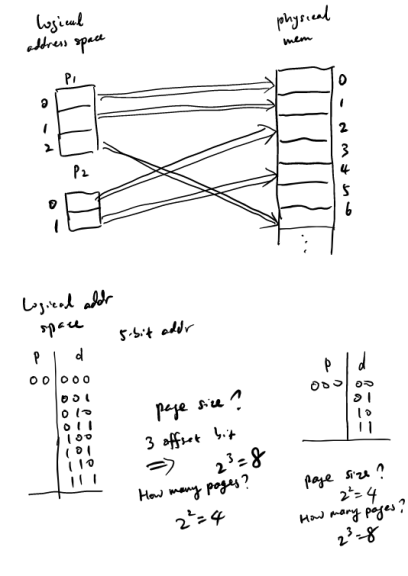 Logical
address space
physical
mem
P1
0
1
2
P2
0
1
0
1
2
3
4
5
6
Logical addr
space
5-bit addr
p d
00 000
001
010
011
100
101
110
111
page size?
3 offset bit
⇒ 2^3=8
How many pages?
2^2=4
p d
000 00
01
10
11
page size?
2^2=4
How many pages?
2^3=8